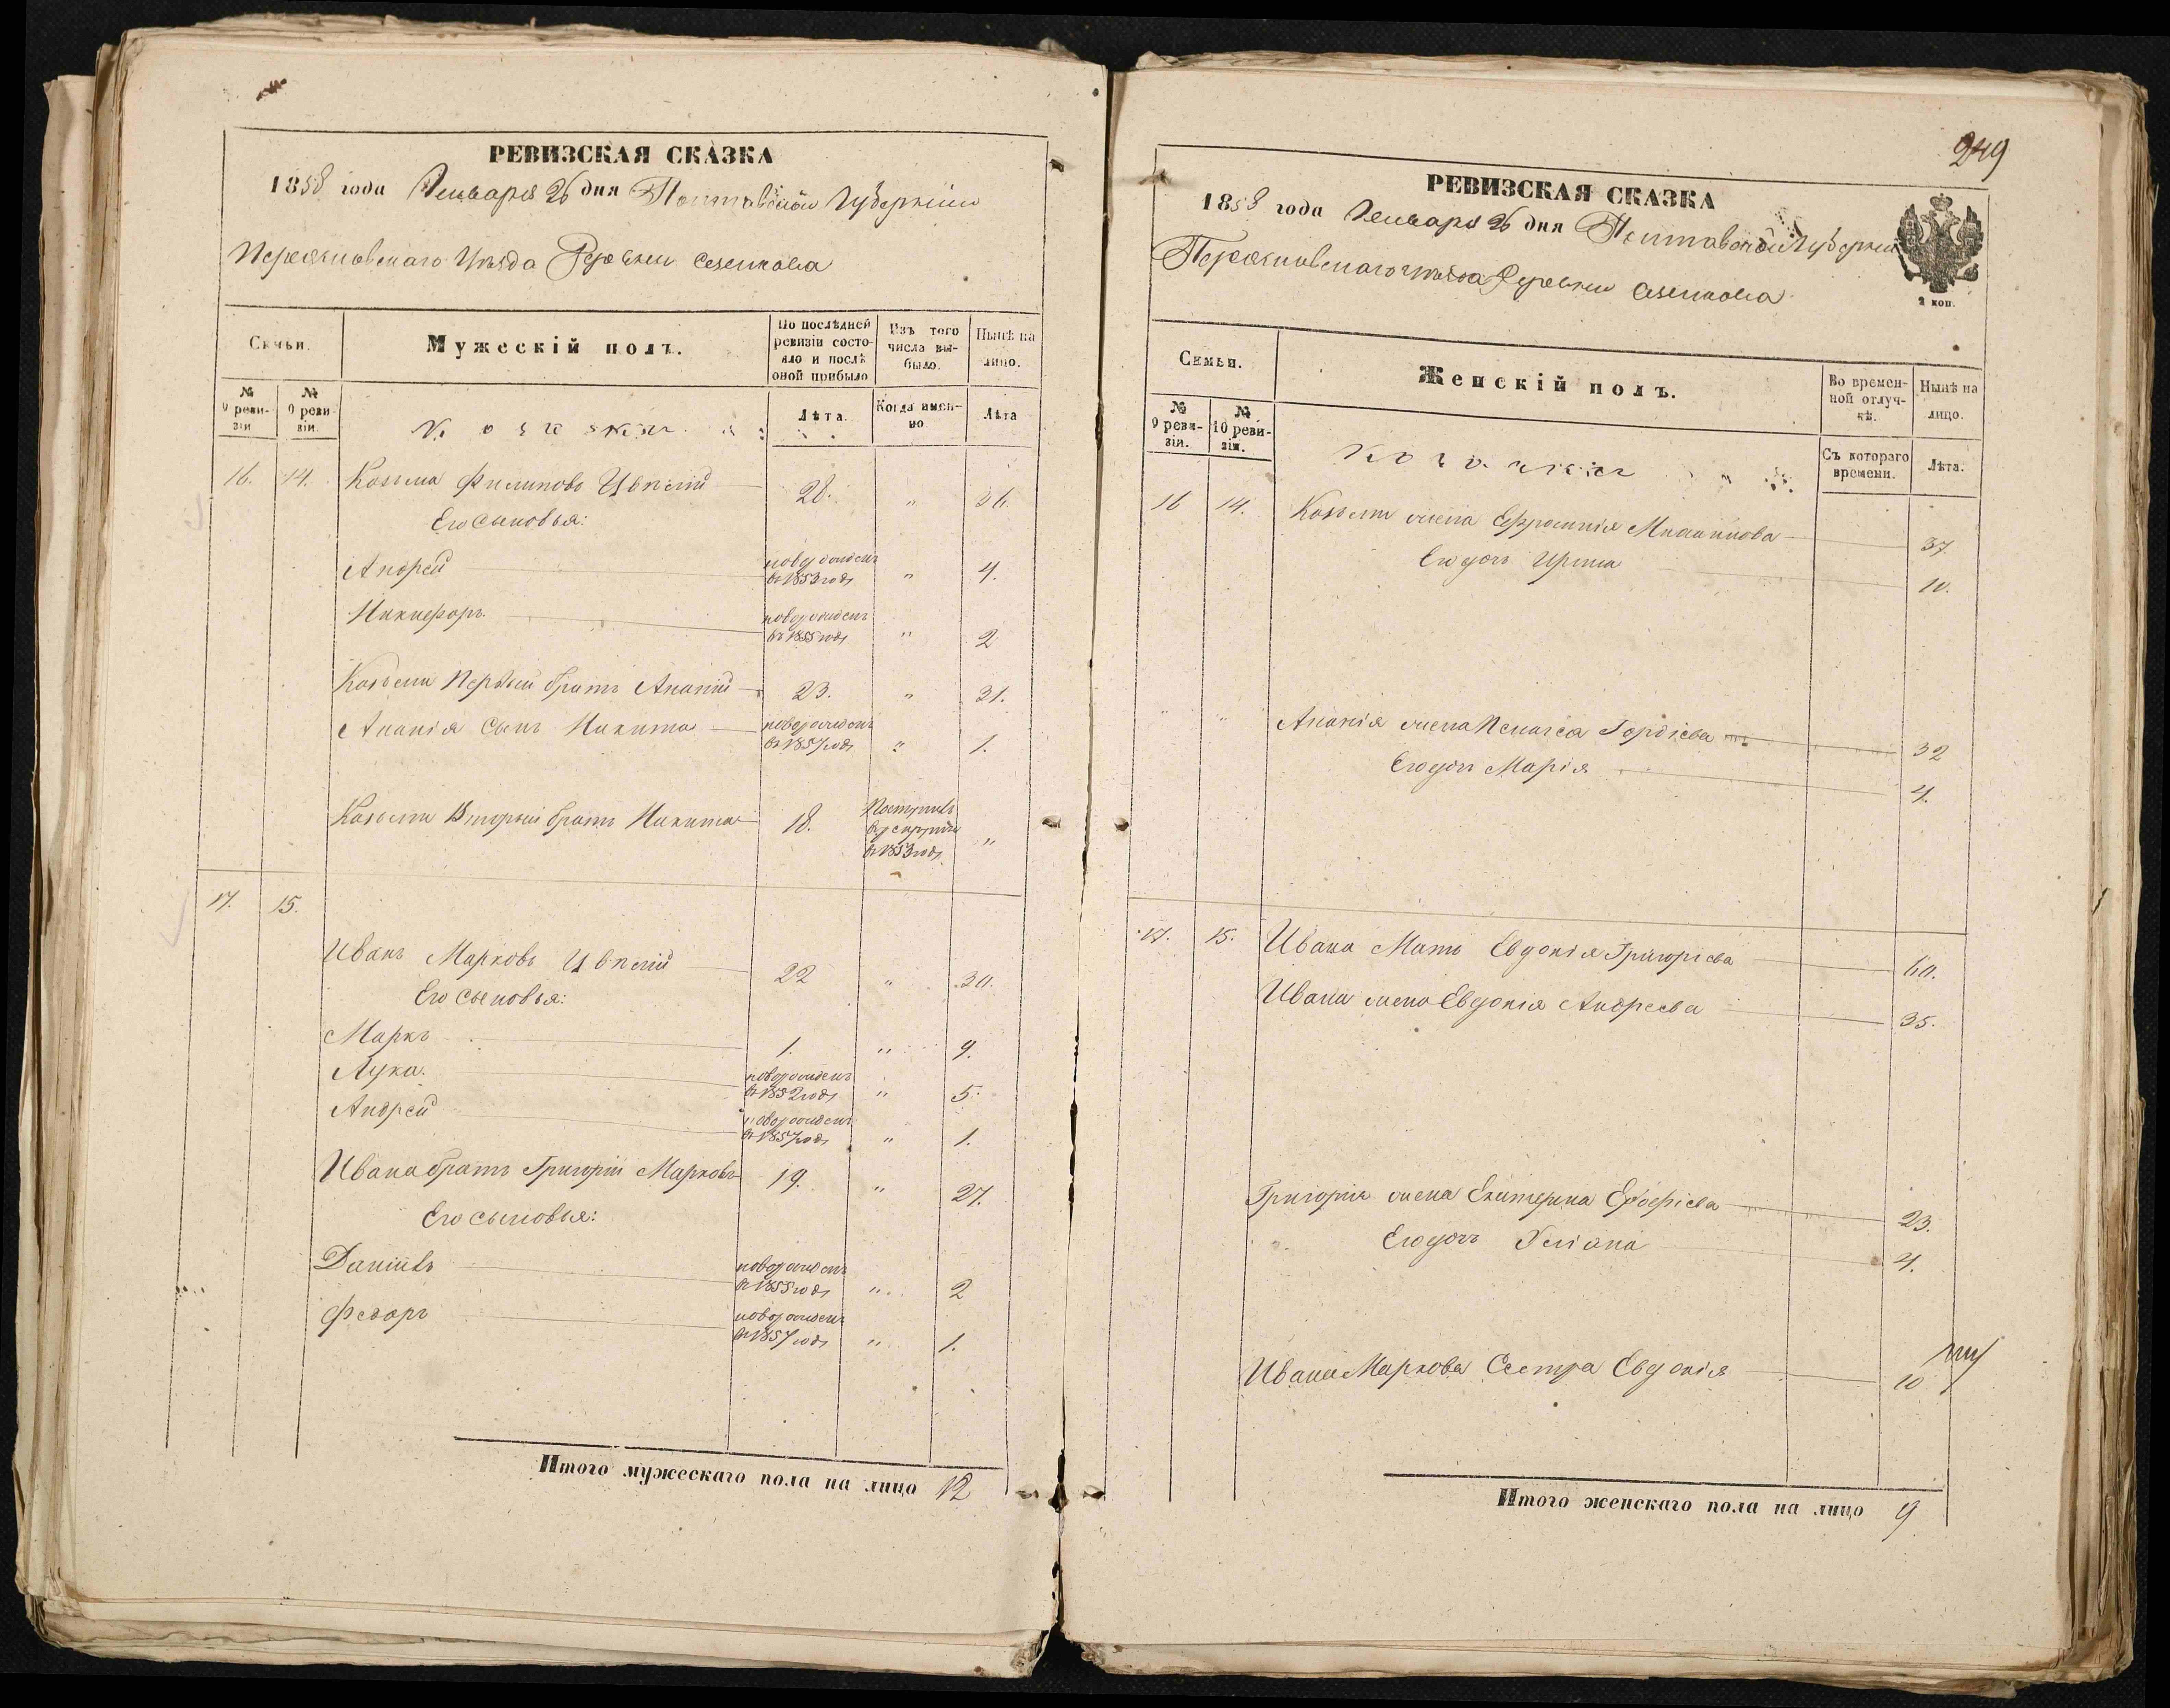 РЕВИЗСКАЯ СКАЗКА
1858 года Генваря 26 дня Полтавской Губерніи
Переяславскаго Уезда Деревни
Семьи.
Мужескій полъ.
По послѣдней ревизіи состояло и послѣ оной прибыло
Изъ того числа выбыло.
Нынѣ на лицо.
№ 9 ревизіи
№ 0 ревизіи.
Лѣта.
Когда именно
Лѣта
16. 14. Козьма Филиповъ 28. " 36.
Его сыновья:
Андрей новорожденъ въ 1853 годѣ " 4.
Никифоръ новорожденъ въ 1855 годѣ " 2
Козьмы Первый братъ Ананій 23. " 31.
Ананія сынъ Никита новорожденъ въ 1857 годѣ " 1.
Козьмы Вторый братъ Никита 18. въ 1853 годѣ "
17. 15.
Иванъ Марковъ 22 " 30.
Его сыновья:
Маркъ 1. " 9.
Лука. новорожденъ въ 1852 годѣ " 5.
Андрей новорожденъ въ 1857 годѣ " 1.
Ивана братъ Григорій Марковъ 19. " 27.
Его сыновья:
Даніилъ новорожденъ въ 1855 годѣ " 2
Федоръ новорожденъ въ 1857 годѣ " 1.
Итого мужескаго пола на лицо 12
249
РЕВИЗСКАЯ СКАЗКА
1858 года Генваря 26 дня Полтавской Губерніи
Переяславскаго уезда Деревни
2 коп.
Семьи.
Женскій полъ.
Во временной отлучкѣ.
Нынѣ на лицо.
№ 9 ревизія.
№ 10 ревизія.
Съ котораго времени.
Лѣта.
16 14. Козьмы жена Ефросинія 37.
Его дочь Ирина 10.
" " Ананія жена Пелагея Гордіева 32
Его дочь Марія 4.
17. 15. Ивана Мать Евдокія Григоріева 60.
Ивана жена Евдокія Андреева 35.
Григорія жена Екатерина 23.
Его дочь Уліана 4.
Ивана Маркова Сестра Евдокія 10
Итого женскаго пола на лицо 9